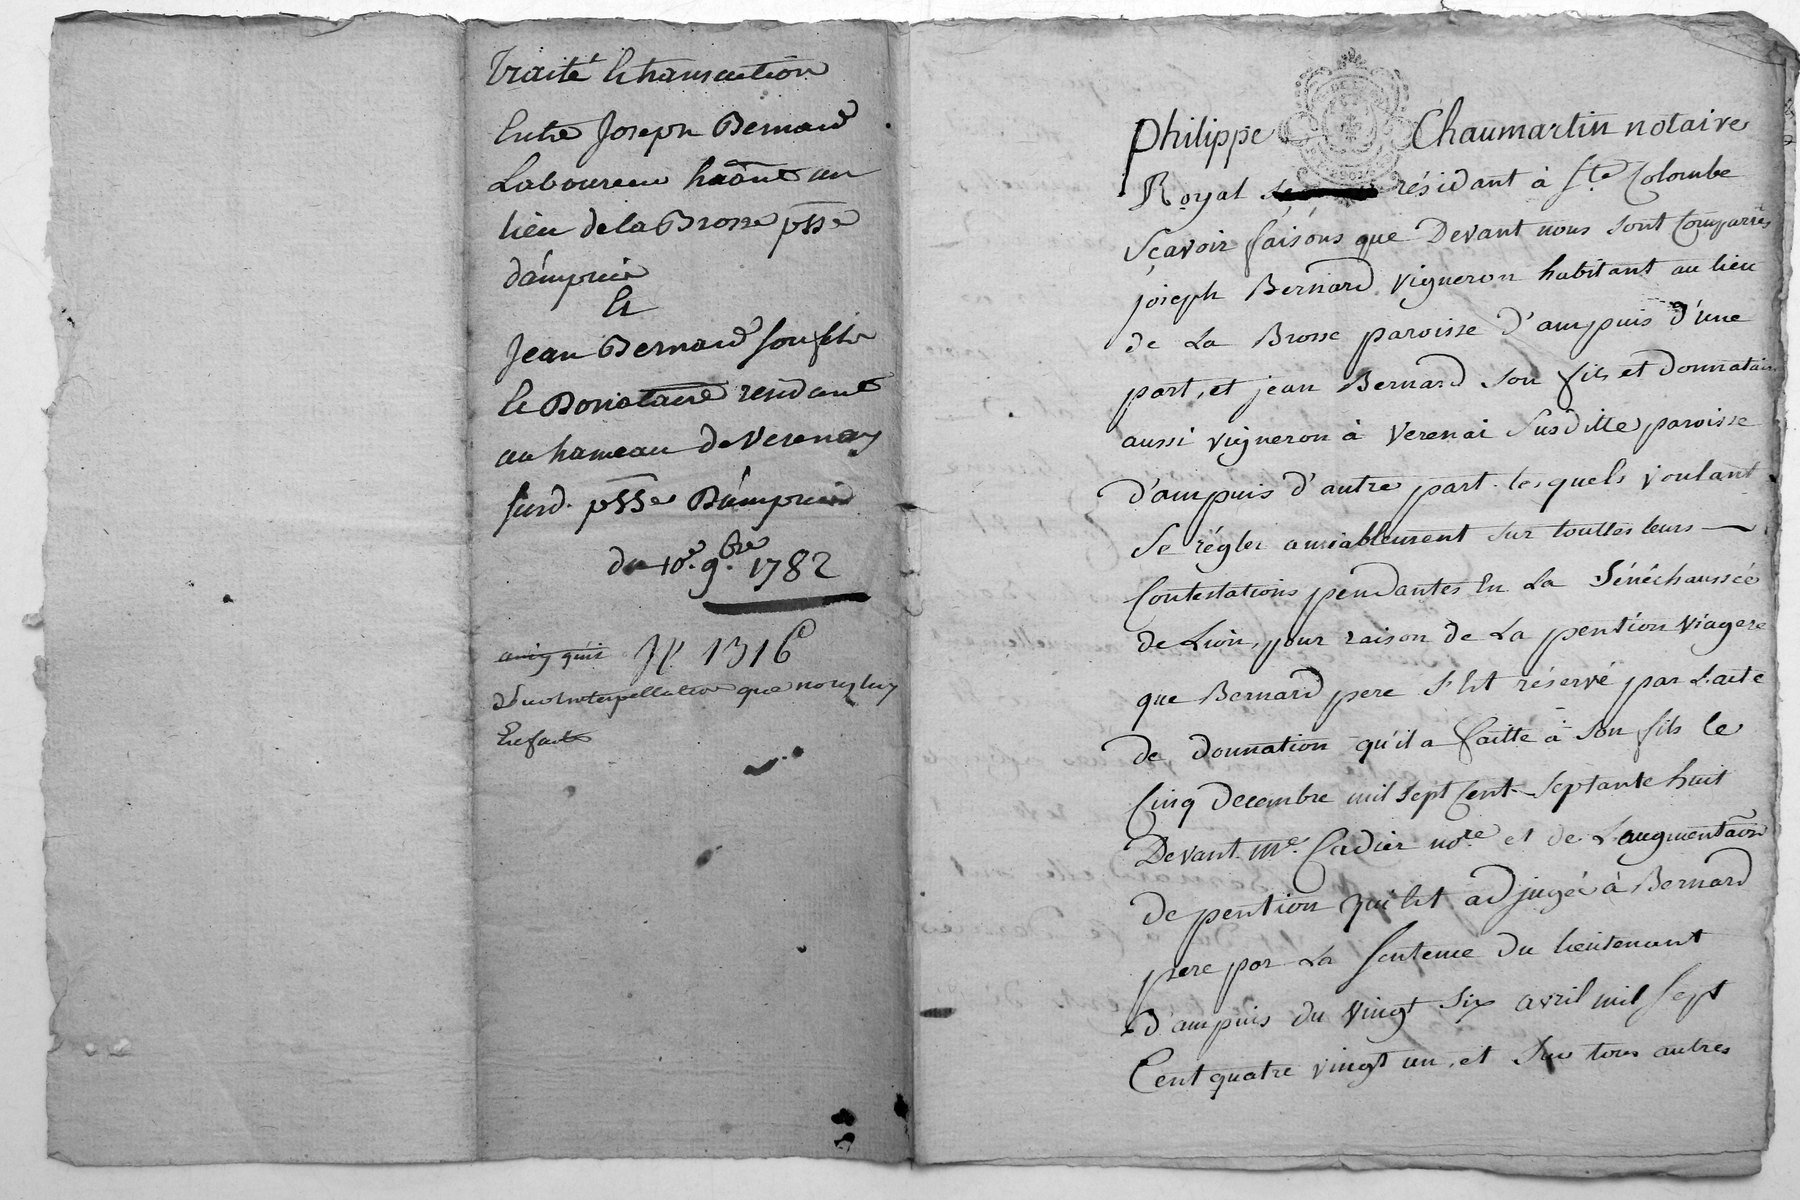 Traité & transaction
Entre Joseph Bernard
Laboureur habitant au
lieu de la Brosse psse
d'ampuis
Et
Jean Bernard son fils
le Donataire residant
au hameau de Verenay
susd. psse D'ampuis
du 10e. 9bre 1782
1316
interpellation que nous luy
En faite
Philippe Chaumartin notaire
Royal résidant à Ste Colombe
Sçavoir faisons que Devant nous sont Comparrûs
joseph Bernard vigneron habitant au lieu
de La Brosse paroisse d'ampuis d'une
part, et jean Bernard son fils et donnataire
aussi vigneron à Verenai Susditte paroisse
d'ampuis d'autre part. lesquels voulant
Se régler amiablement sur touttes leurs
Contestations pendantes En La Sénéchaussée
de Lion, pour raison de La pention viagere
que Bernard pere s'Est réservé par L'acte
de donnation qu'il a faitte à Son fils le
Cinq decembre mil sept Cent Septante huit
Devant me. Cadier nore et de L'augmentaôn
de pention qui Est adjugée à Bernard
pere par La Sentence du lieutenant
d'ampuis du vingt six avril mil sept
Cent quatre vingt un, et Sur tous autres